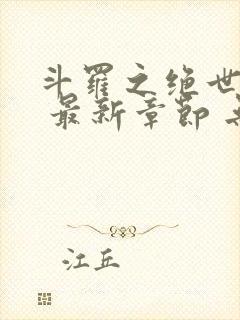 斗罗之绝世
最新章节
江丘